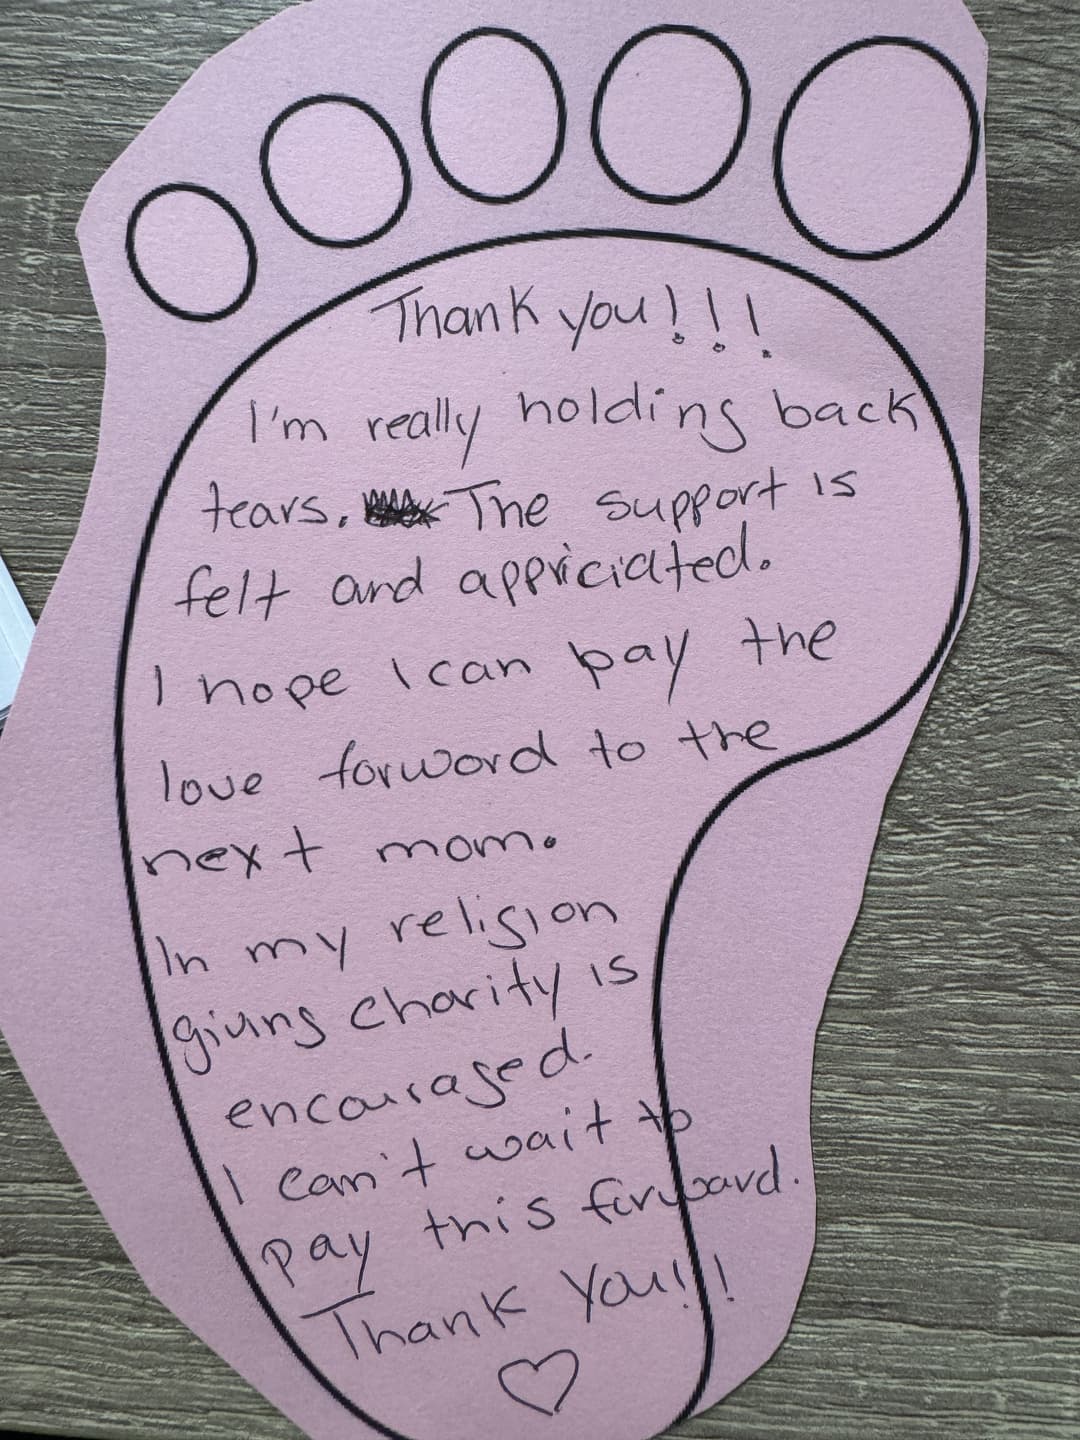 Thank you!!!
I'm really holding back
tears. The support is
felt and appriciated.
I hope I can pay the
love forword to the
next mom.
In my religion
giving charity is
encouraged.
I can't wait to
pay this forward.
Thank You!!!